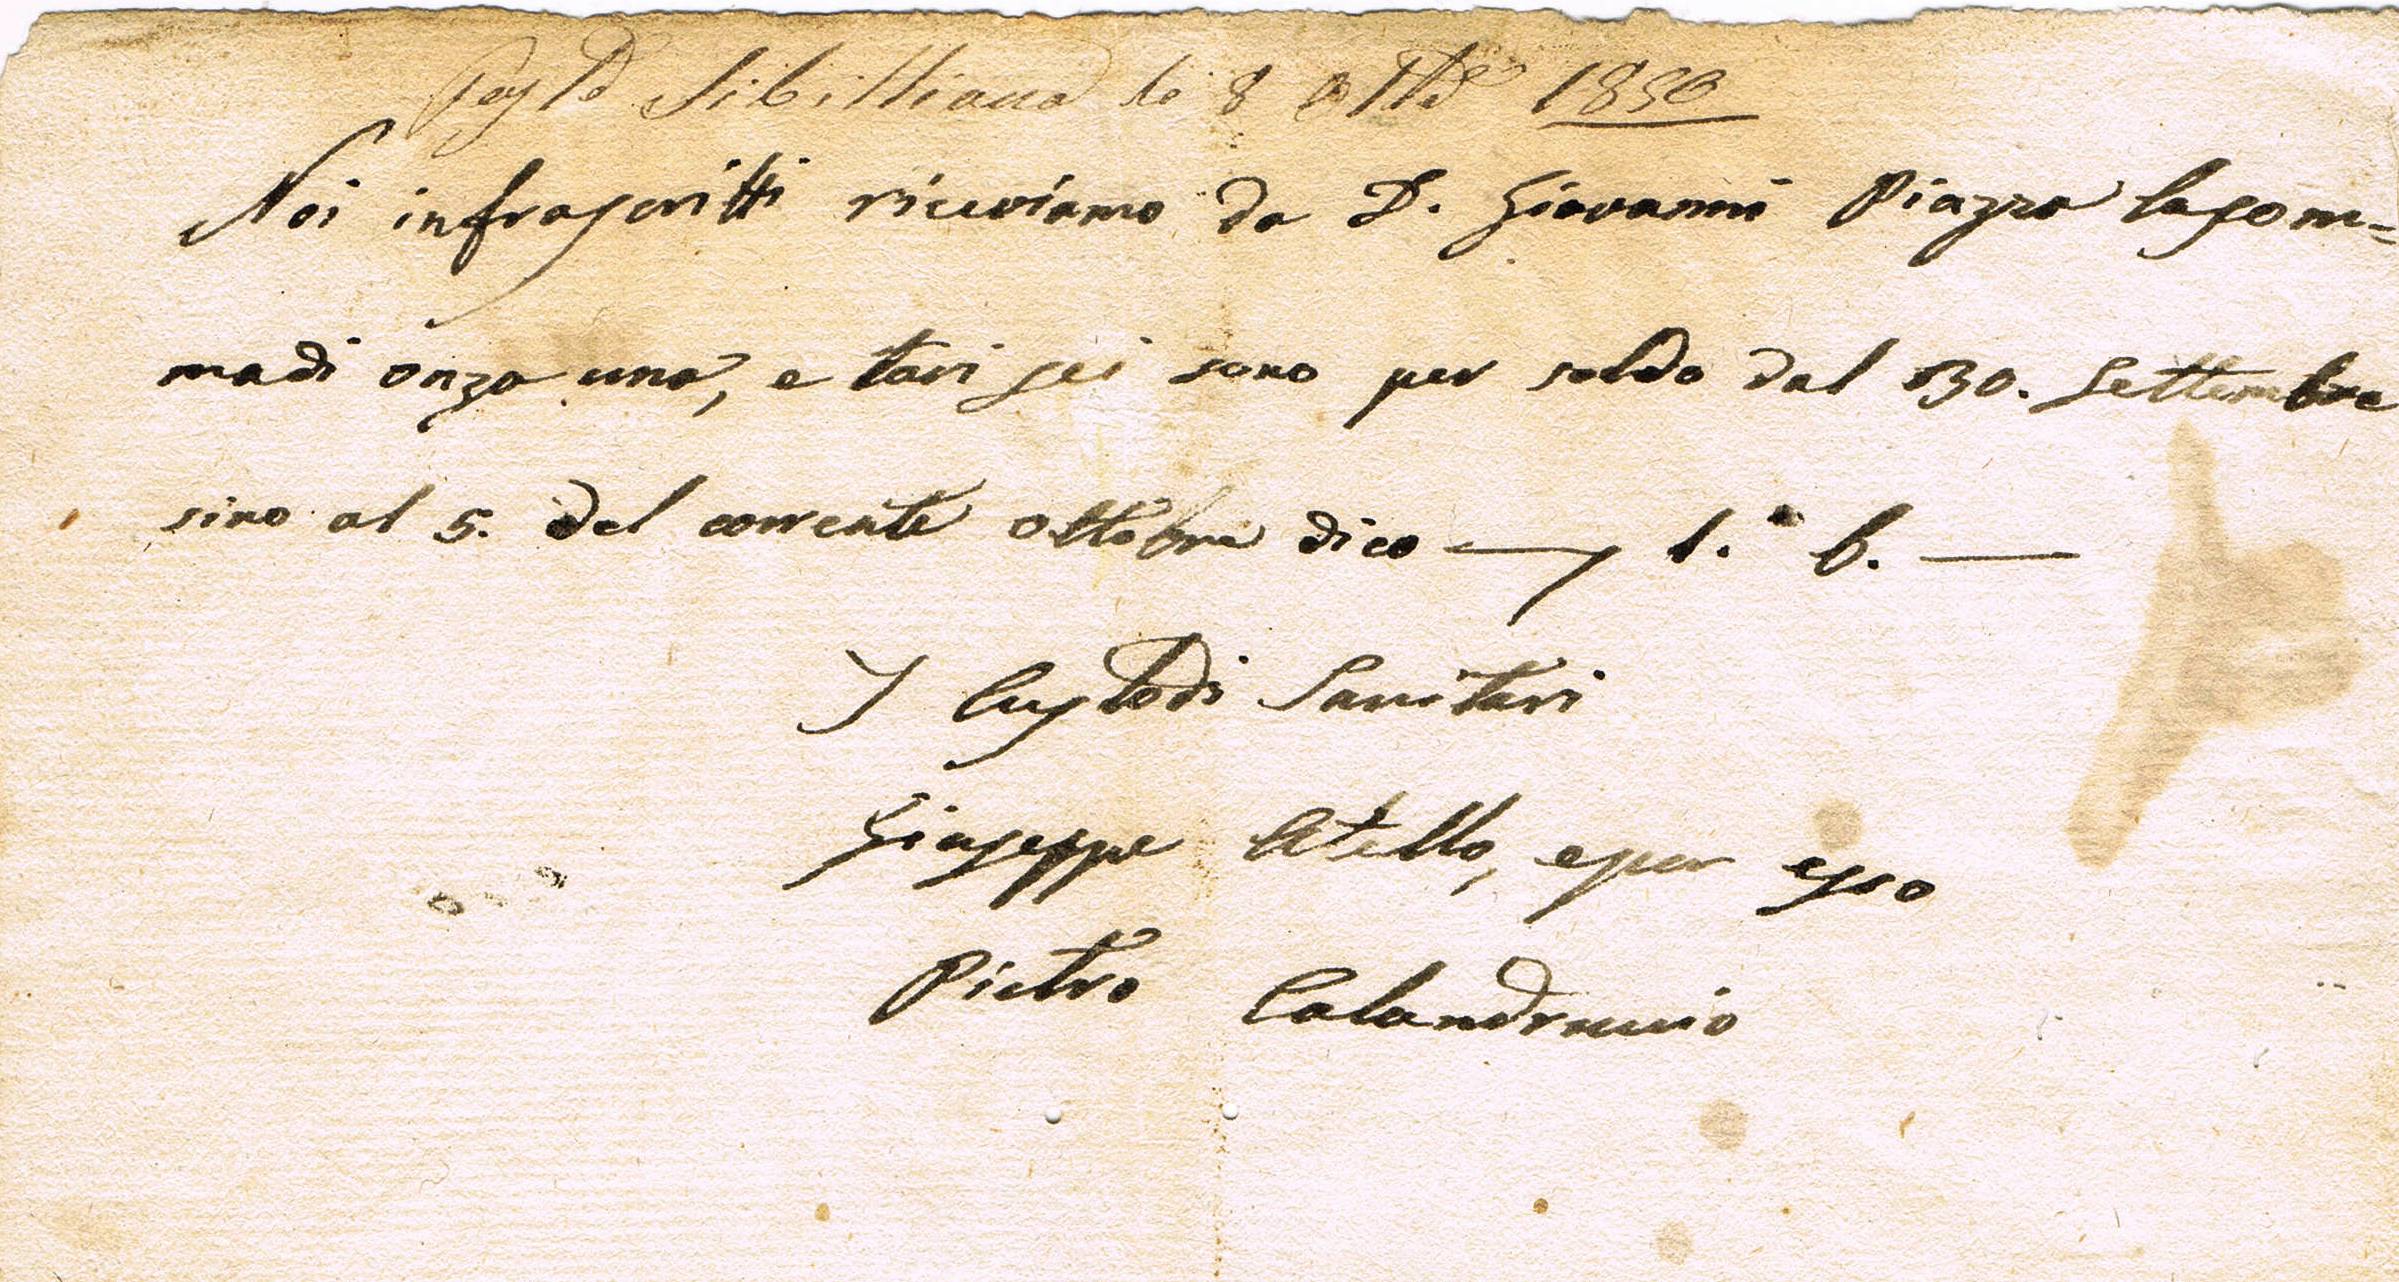 Sibilliana li 8 8bre 1830
Noi infrascritti riceviamo da D. Giovanni Piazza la som=
ma di onza una, e tari sei sono per soldo dal 30. Settembre
sino al 5. del corrente ottobre dico — 1." 6. —
I Custodi Sanitari
Giuseppe Atello, e per esso
Pietro Calandruccio